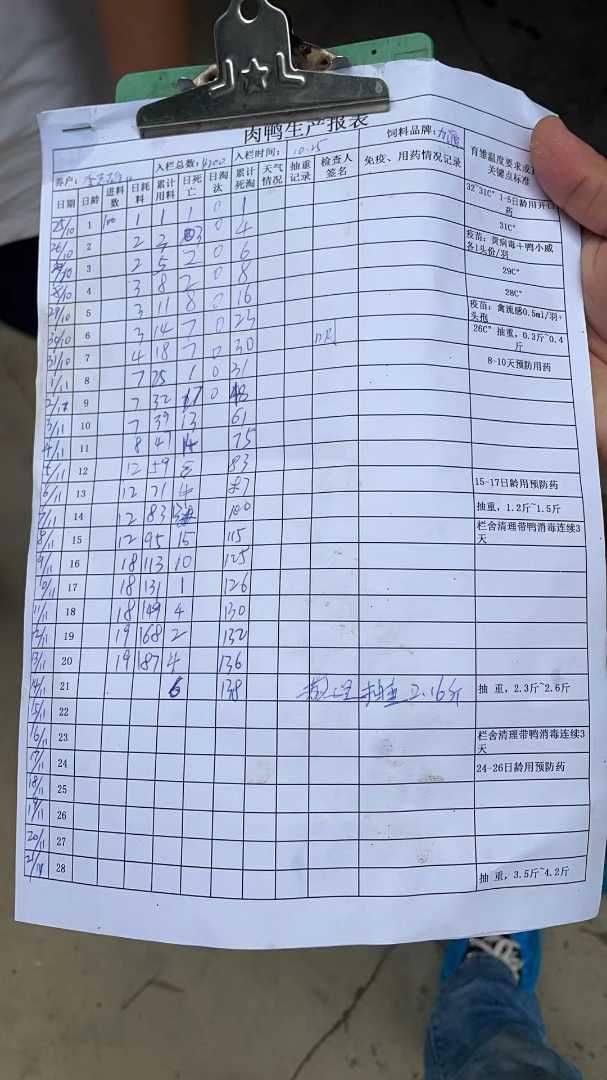 肉鸭生产报表
养户: 入栏总数:4200 入栏时间: 10.25 饲料品牌:
日期 日龄 进料数 日耗料 累计用料 日死亡 日淘汰 累计死淘 天气情况 抽重记录 检查人签名 免疫、用药情况记录 育雏温度要求或 关键点标准
25/10 1 100 1 1 1 0 1 32~31C° 1-5日龄用开口药
26/10 2 2 3 3 0 4 31C°
3 2 5 2 0 6 疫苗:黄病毒+鸭小威 各1头份/羽
28/10 4 3 8 2 0 8 29C°
29/10 5 3 11 8 0 16 28C°
30/10 6 3 14 7 0 23 疫苗:禽流感0.5ml/羽+头孢
31/10 7 4 18 7 0 30 26C° 抽重,0.3斤~0.4斤
1/11 8 7 25 1 0 31 8-10天预防用药
2/11 9 7 32 17 0 48
3/11 10 7 39 13 61
4/11 11 8 47 14 75
5/11 12 12 59 83
6/11 13 12 71 4 87 15-17日龄用预防药
7/11 14 12 83 100 抽重,1.2斤~1.5斤
8/11 15 12 95 15 115 栏舍清理带鸭消毒连续3天
9/11 16 18 113 10 125
10/11 17 18 131 1 126
11/11 18 18 149 4 130
12/11 19 19 168 2 132
13/11 20 19 187 4 136
14/11 21 6 138 2.16斤 抽 重,2.3斤~2.6斤
15/11 22
16/11 23 栏舍清理带鸭消毒连续3天
17/11 24 24-26日龄用预防药
18/11 25
19/11 26
20/11 27
21/11 28 抽 重,3.5斤~4.2斤